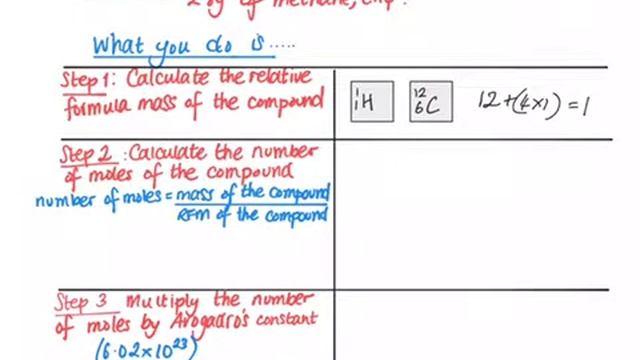 of methane, CH4.
What you do is.....
Step 1: Calculate the relative
formula mass of the compound
1 1 H
12 6 C
12+(4×1) = 1
Step 2: Calculate the number
of moles of the compound
number of moles = mass of the compound
RFM of the compound
Step 3 Multiply the number
of moles by Avogadro's constant
(6.02×10²³)